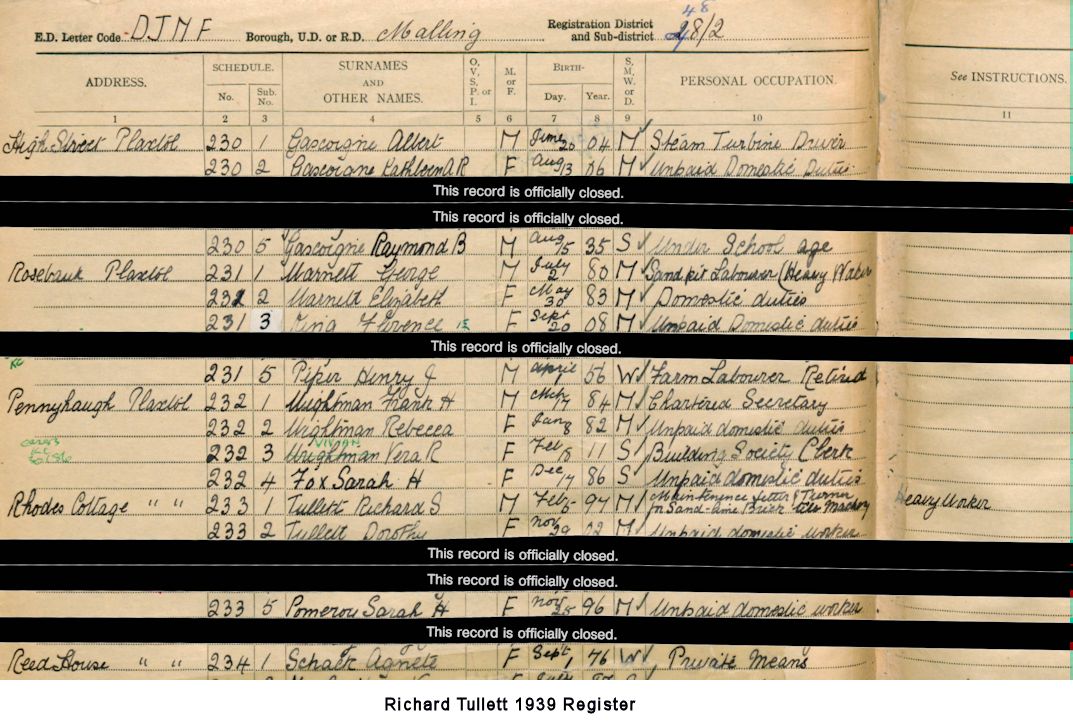 E.D. Letter Code DJMF Borough, U.D. or R.D. Malling Registration District and Sub-district 48 28/2
ADDRESS. SCHEDULE. No. Sub. No. SURNAMES AND OTHER NAMES. O, V, S, P. or I. M. or F. BIRTH- Day. Year. S, M, W. or D. PERSONAL OCCUPATION. See INSTRUCTIONS.
1 2 3 4 5 6 7 8 9 10 11
High Street Plaxtol 230 1 Gascoigne Albert M June 20 04 M Steam Turbine Driver
230 2 Gascoigne Kathleen A R F Aug 13 06 M Unpaid Domestic Duties
This record is officially closed.
This record is officially closed.
230 5 Gascoigne Raymond B M Aug 15 35 S Under School age
Rosebank Plaxtol 231 1 Warnett George M July 2 80 M Sand pit Labourer (Heavy Worker
231 2 Warnett Elizabeth F May 30 83 M Domestic duties
231 3 King Florence F Sept 20 08 M Unpaid Domestic duties
This record is officially closed.
231 5 Piper Henry J M April 56 W Farm Labourer Retired
Pennyhaugh Plaxtol 232 1 Wightman Frank H M Mch 17 84 M Chartered Secretary
232 2 Wightman Rebecca F Jan 8 82 M Unpaid domestic duties
VIVIAN
232 3 Wightman Vera R F Feb 18 11 S Building Society Clerk
232 4 Fox Sarah H F Dec 17 86 S Unpaid domestic duties
Rhodes Cottage " " 233 1 Tullett Richard S M Feb 5 97 M Maintenence fitter & Turner for Sand-lime Brick Machery Heavy Worker
233 2 Tullett Dorothy F Nov 29 02 M Unpaid domestic worker
This record is officially closed.
This record is officially closed.
233 5 Pomeroy Sarah H F Nov 25 96 M Unpaid domestic worker
This record is officially closed.
Reed House " " 234 1 Schack Agnete F Sept 1 76 W Private Means
Richard Tullett 1939 Register